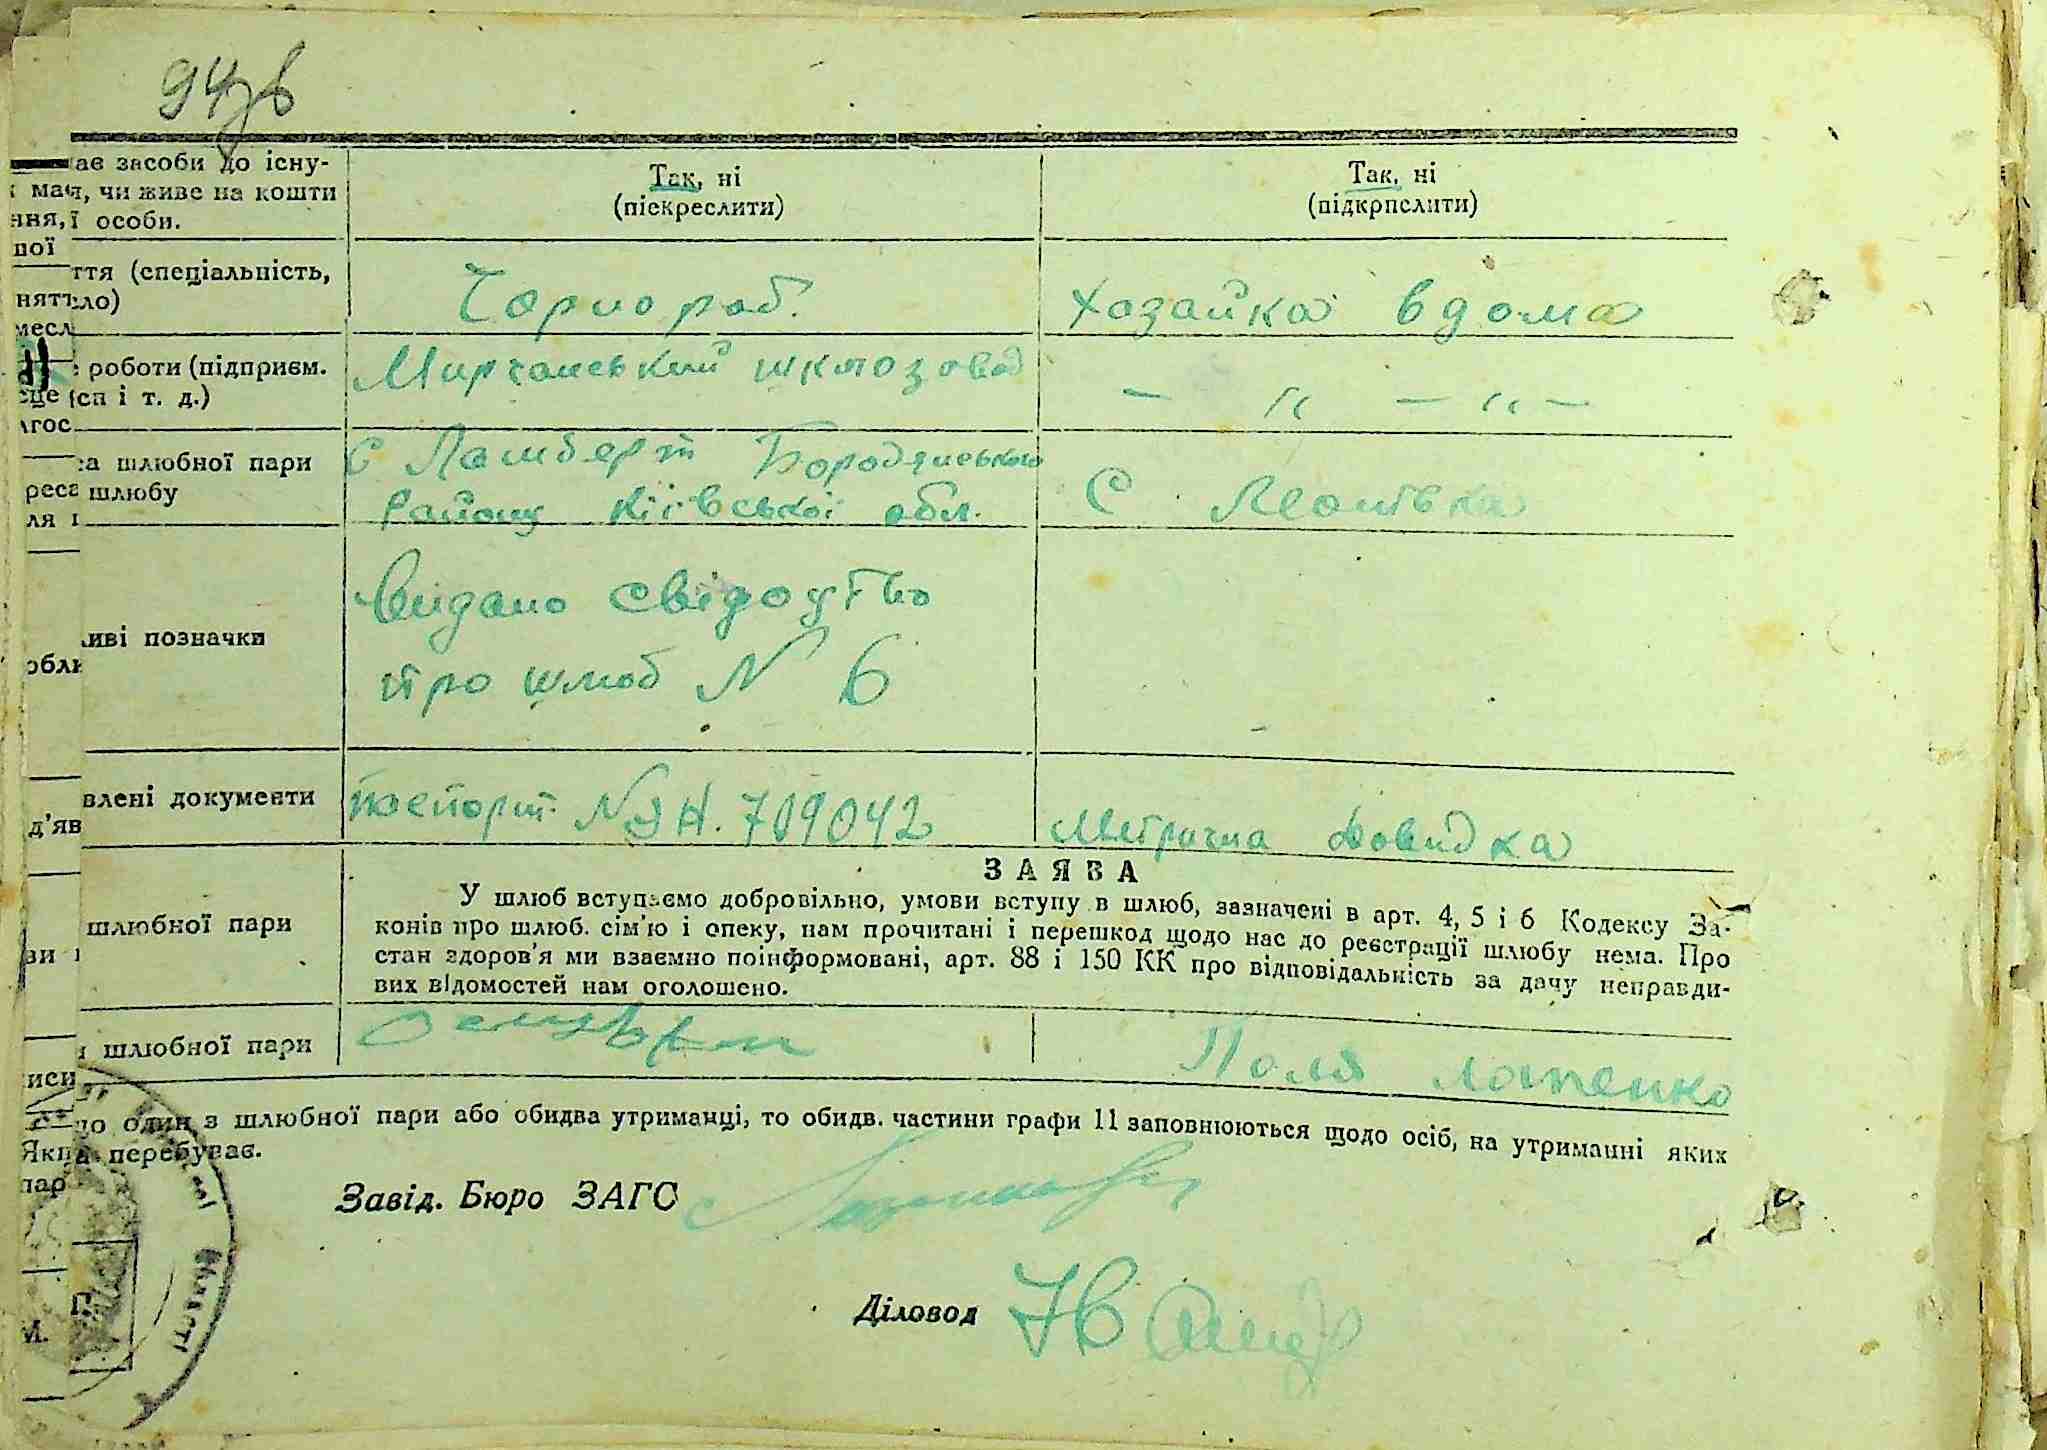 94зв
ає засоби до існу-
має, чи живе на кошти
ння, ї особи.
Так, ні
(піекреслити)
Так, ні
(підкрпслити)
ття (спеціальність,
ло)
Чорнораб.
Хазайка вдома
роботи (підприєм.
сп і т. д.)
Мирчанський шклозавод
— " — " —
са шлюбної пари
шлюбу
С Ламберт Бородянського
району Київської обл.
С Леонівка
иві позначки
Видано свідоцтво
про шлюб N 6
влені документи
паспорт N ЯН. 709042
Метрична довидка
ЗАЯВА
шлюбної пари
У шлюб вступаємо добровільно, умови вступу в шлюб, зазначені в арт. 4, 5 і 6 Кодексу За-
конів про шлюб. сім'ю і опеку, нам прочитані і перешкод щодо нас до реєстрації шлюбу нема. Про
стан здоров'я ми взаємно поінформовані, арт. 88 і 150 КК про відповідальність за дачу неправди-
вих відомостей нам оголошено.
шлюбної пари
Поля Лапенко
один з шлюбної пари або обидва утриманці, то обидв. частини графи 11 заповнюються щодо осіб, на утриманні яких
перебуває.
Завід. Бюро ЗАГС
Діловод